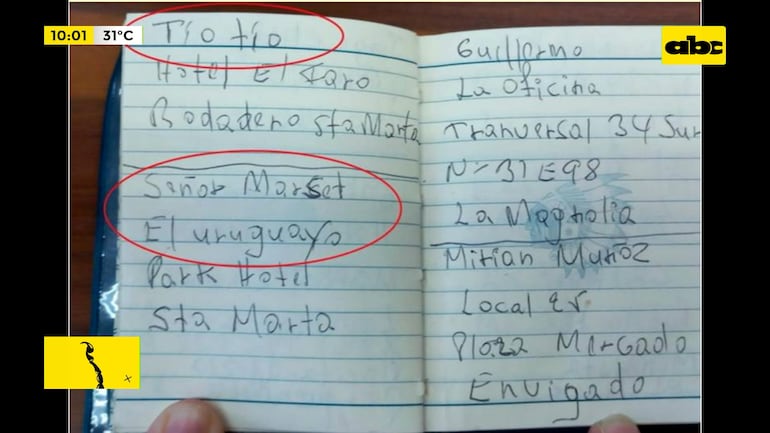 10:01 31°C
abc
Tío tío
Hotel El Faro
Rodadero Sta Marta
Señor Marset
El uruguayo
Park Hotel
Sta Marta
Guillermo
La Oficina
Tranversal 34 Sur
Nº 31 E 98
La Magnolia
Mirian Muñoz
Local
Plaza Mercado
Envigado